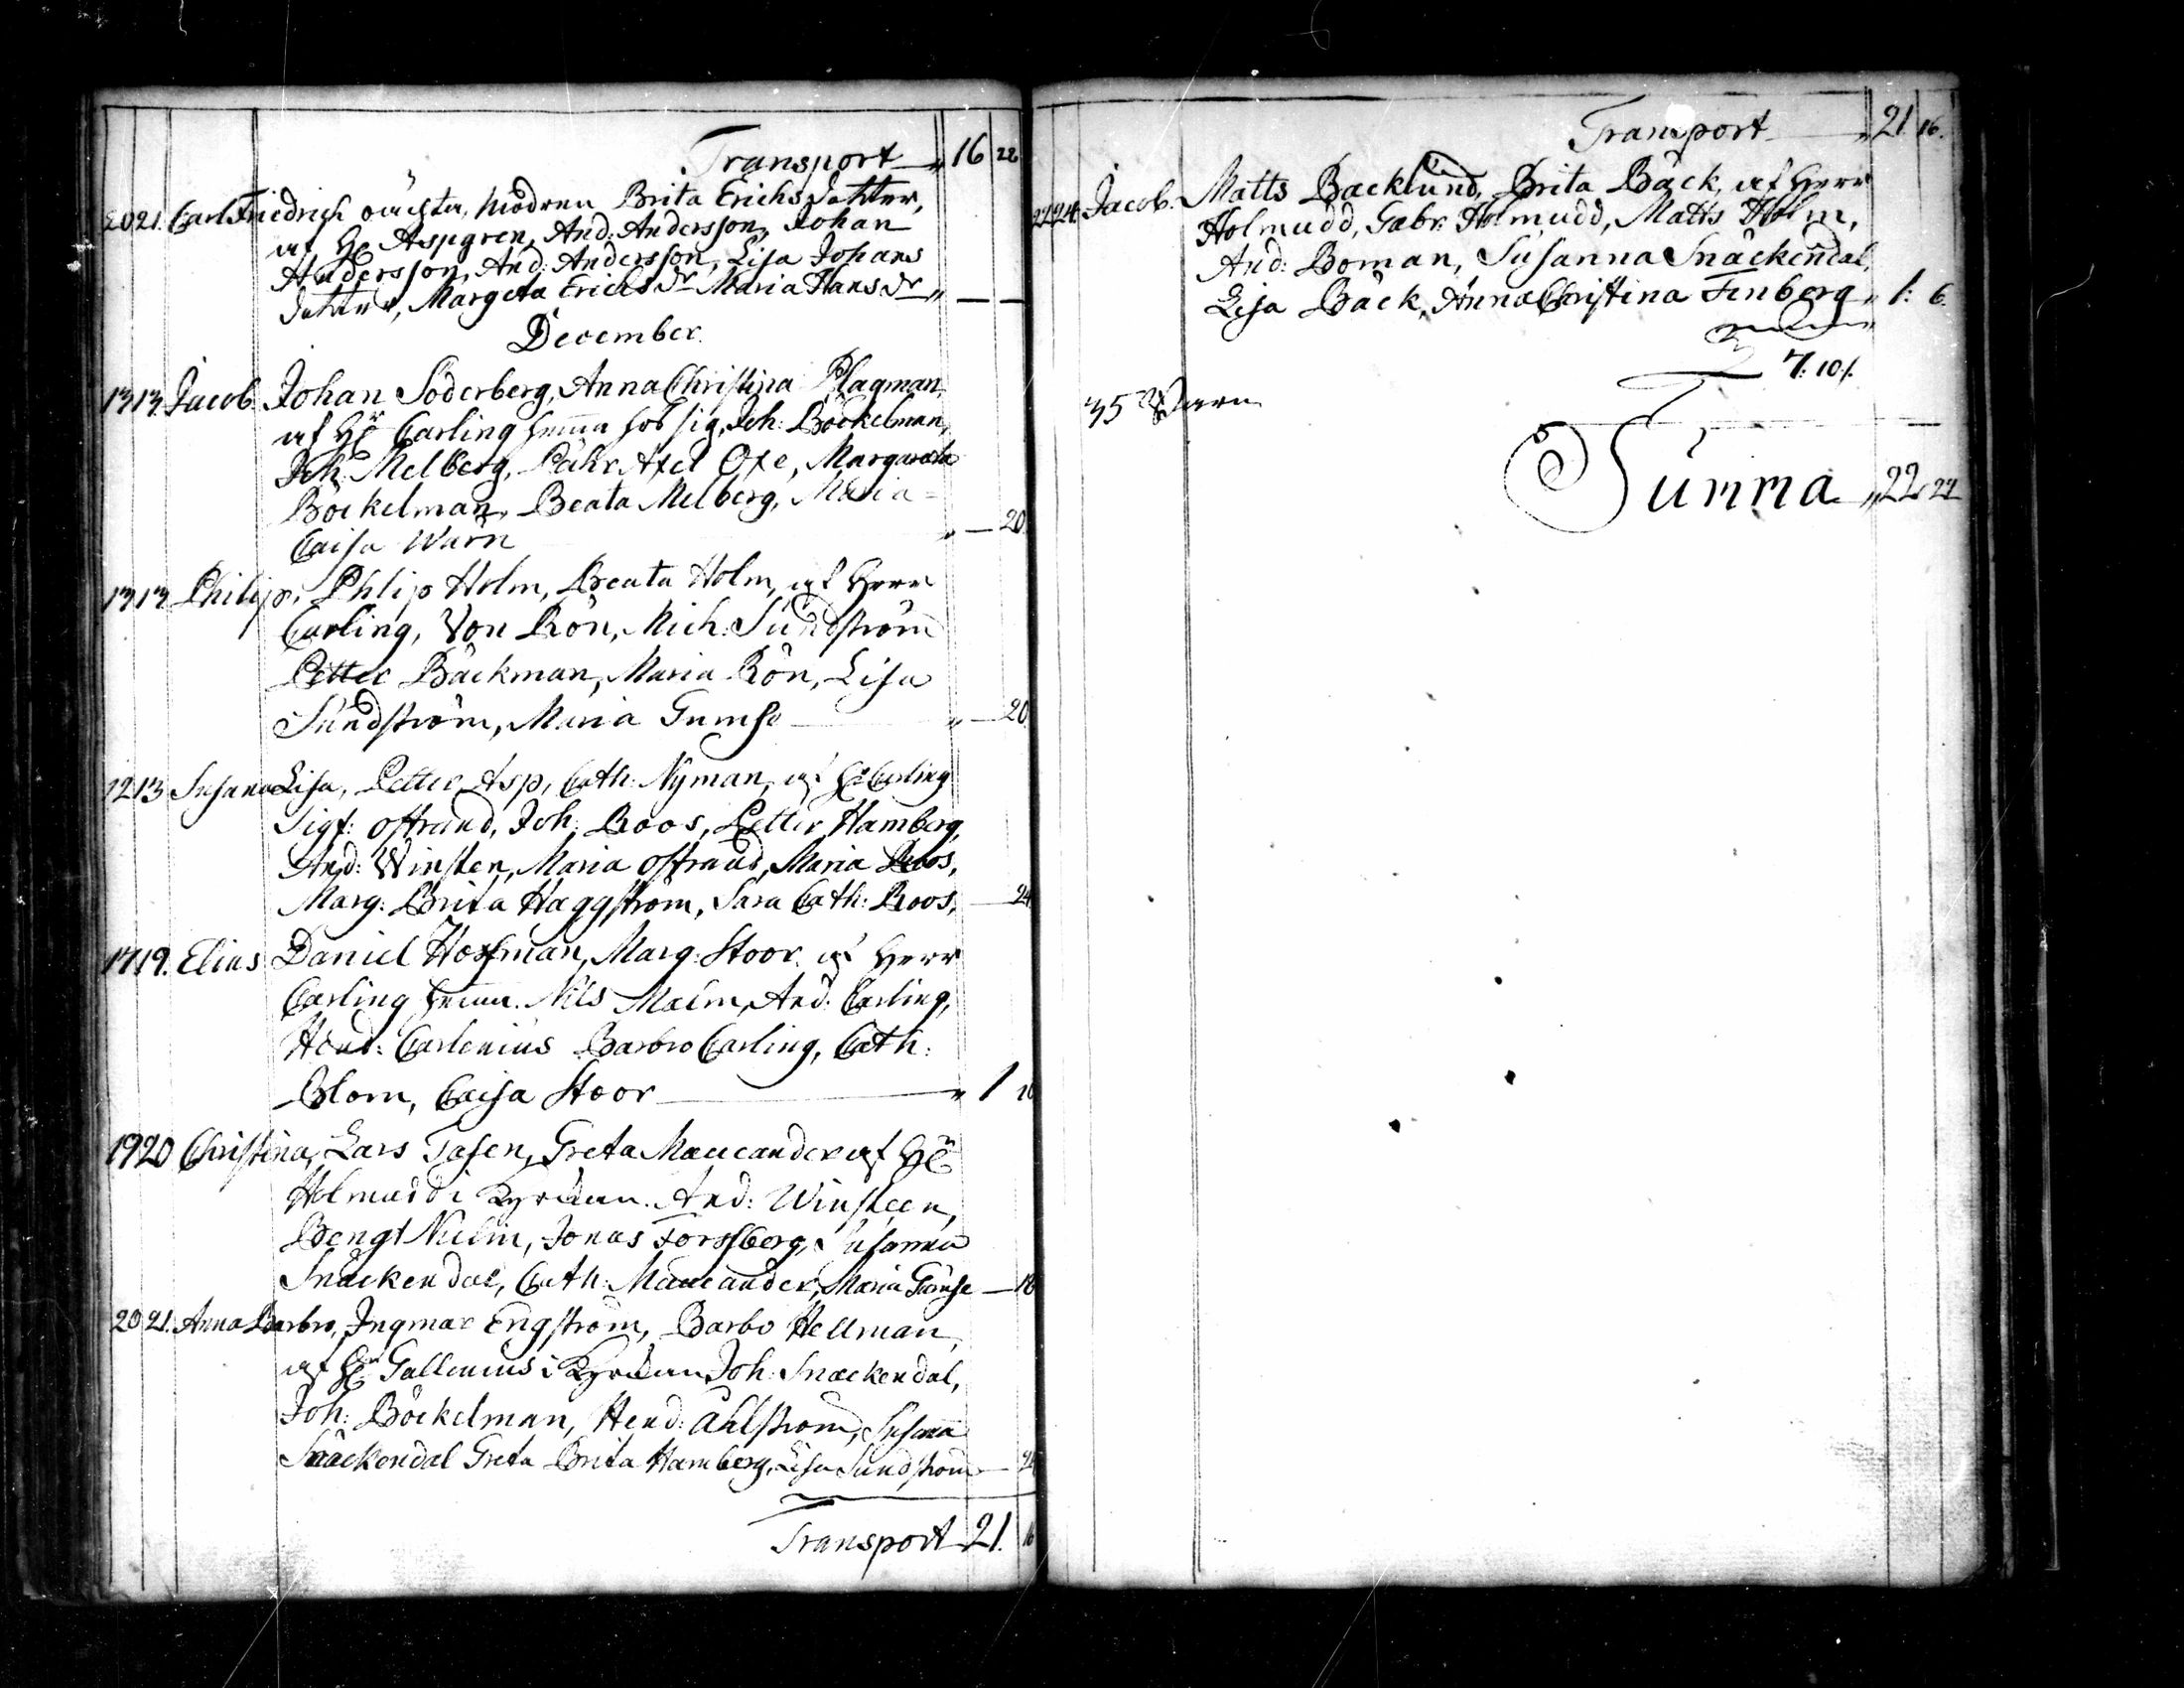 Transport 16 22
20 21. Carl Friedrich oäckta, modren Brita Erichs dotter,
af Hr Aspgren, And: Andersson, Johan
Andersson, And: Andersson, Lisa Johans
dotter, Margeta Erichs dr Maria Hans dr — —
December.
13 13 Jacob. Johan Söderberg, Anna Christina Plagman,
af Hr Carling hemma hos sig, Joh: Böckelman,
Joh: Melberg, Pähr Axel Oxe, Margareta
Böckelman, Beata Melberg, Maria
Caisa Warn — 20
13 13 Philip. Phlip Holm, Beata Holm, af Herr
Carling, Von Rön, Mich: Sundström
Petter Bäckman, Maria Rön, Lisa
Sundström, Maria Gumse — 20.
12 13 Susana Lisa, Petter Asp, Cath: Nyman, af Hr Carling
Sigf: Offrand, Joh: Roos, Petter Hamberg,
And: Winsten, Maria Offrand, Maria Roos,
Marg: Brita Haggström, Sara Cath: Roos, — 24
17 19. Elias Daniel Hoffman, Marg: Stoor af Herr
Carling hemma. Nils Malm, And: Carling,
Hend: Carlenius Barbro Carling, Cath:
Blom, Caisa Stoor — 1
19 20 Christina, Lars Tasen, Greta Maucander af Hr
Holmudd i Kyrckan. And: Winsteen,
Bengt Nielin, Jonas Forssberg, Susanna
Snäckendal, Cath: Maucander, Maria Gumse — 18
20 21. Anna Barbro, Ingmar Engström, Barbo Hellman,
af Hr Gallenius i Kyrckan Joh: Snackendal,
Joh: Böckelman, Hend: Ahlström, Susanna
Snäckendal Greta Brita Hamberg, Lisa Sundström
Transport 21. 16
Transport 21 16.
22 24. Jacob. Matts Backlund, Brita Bäck, af Herr
Holmudd, Gabr: Holmudd, Matts Holm,
And: Boman, Susanna Snäckendal,
Lisa Bäck, Anna Christina Finberg 1: 6.
7: 10/.
35 Barn
Summa 22 22